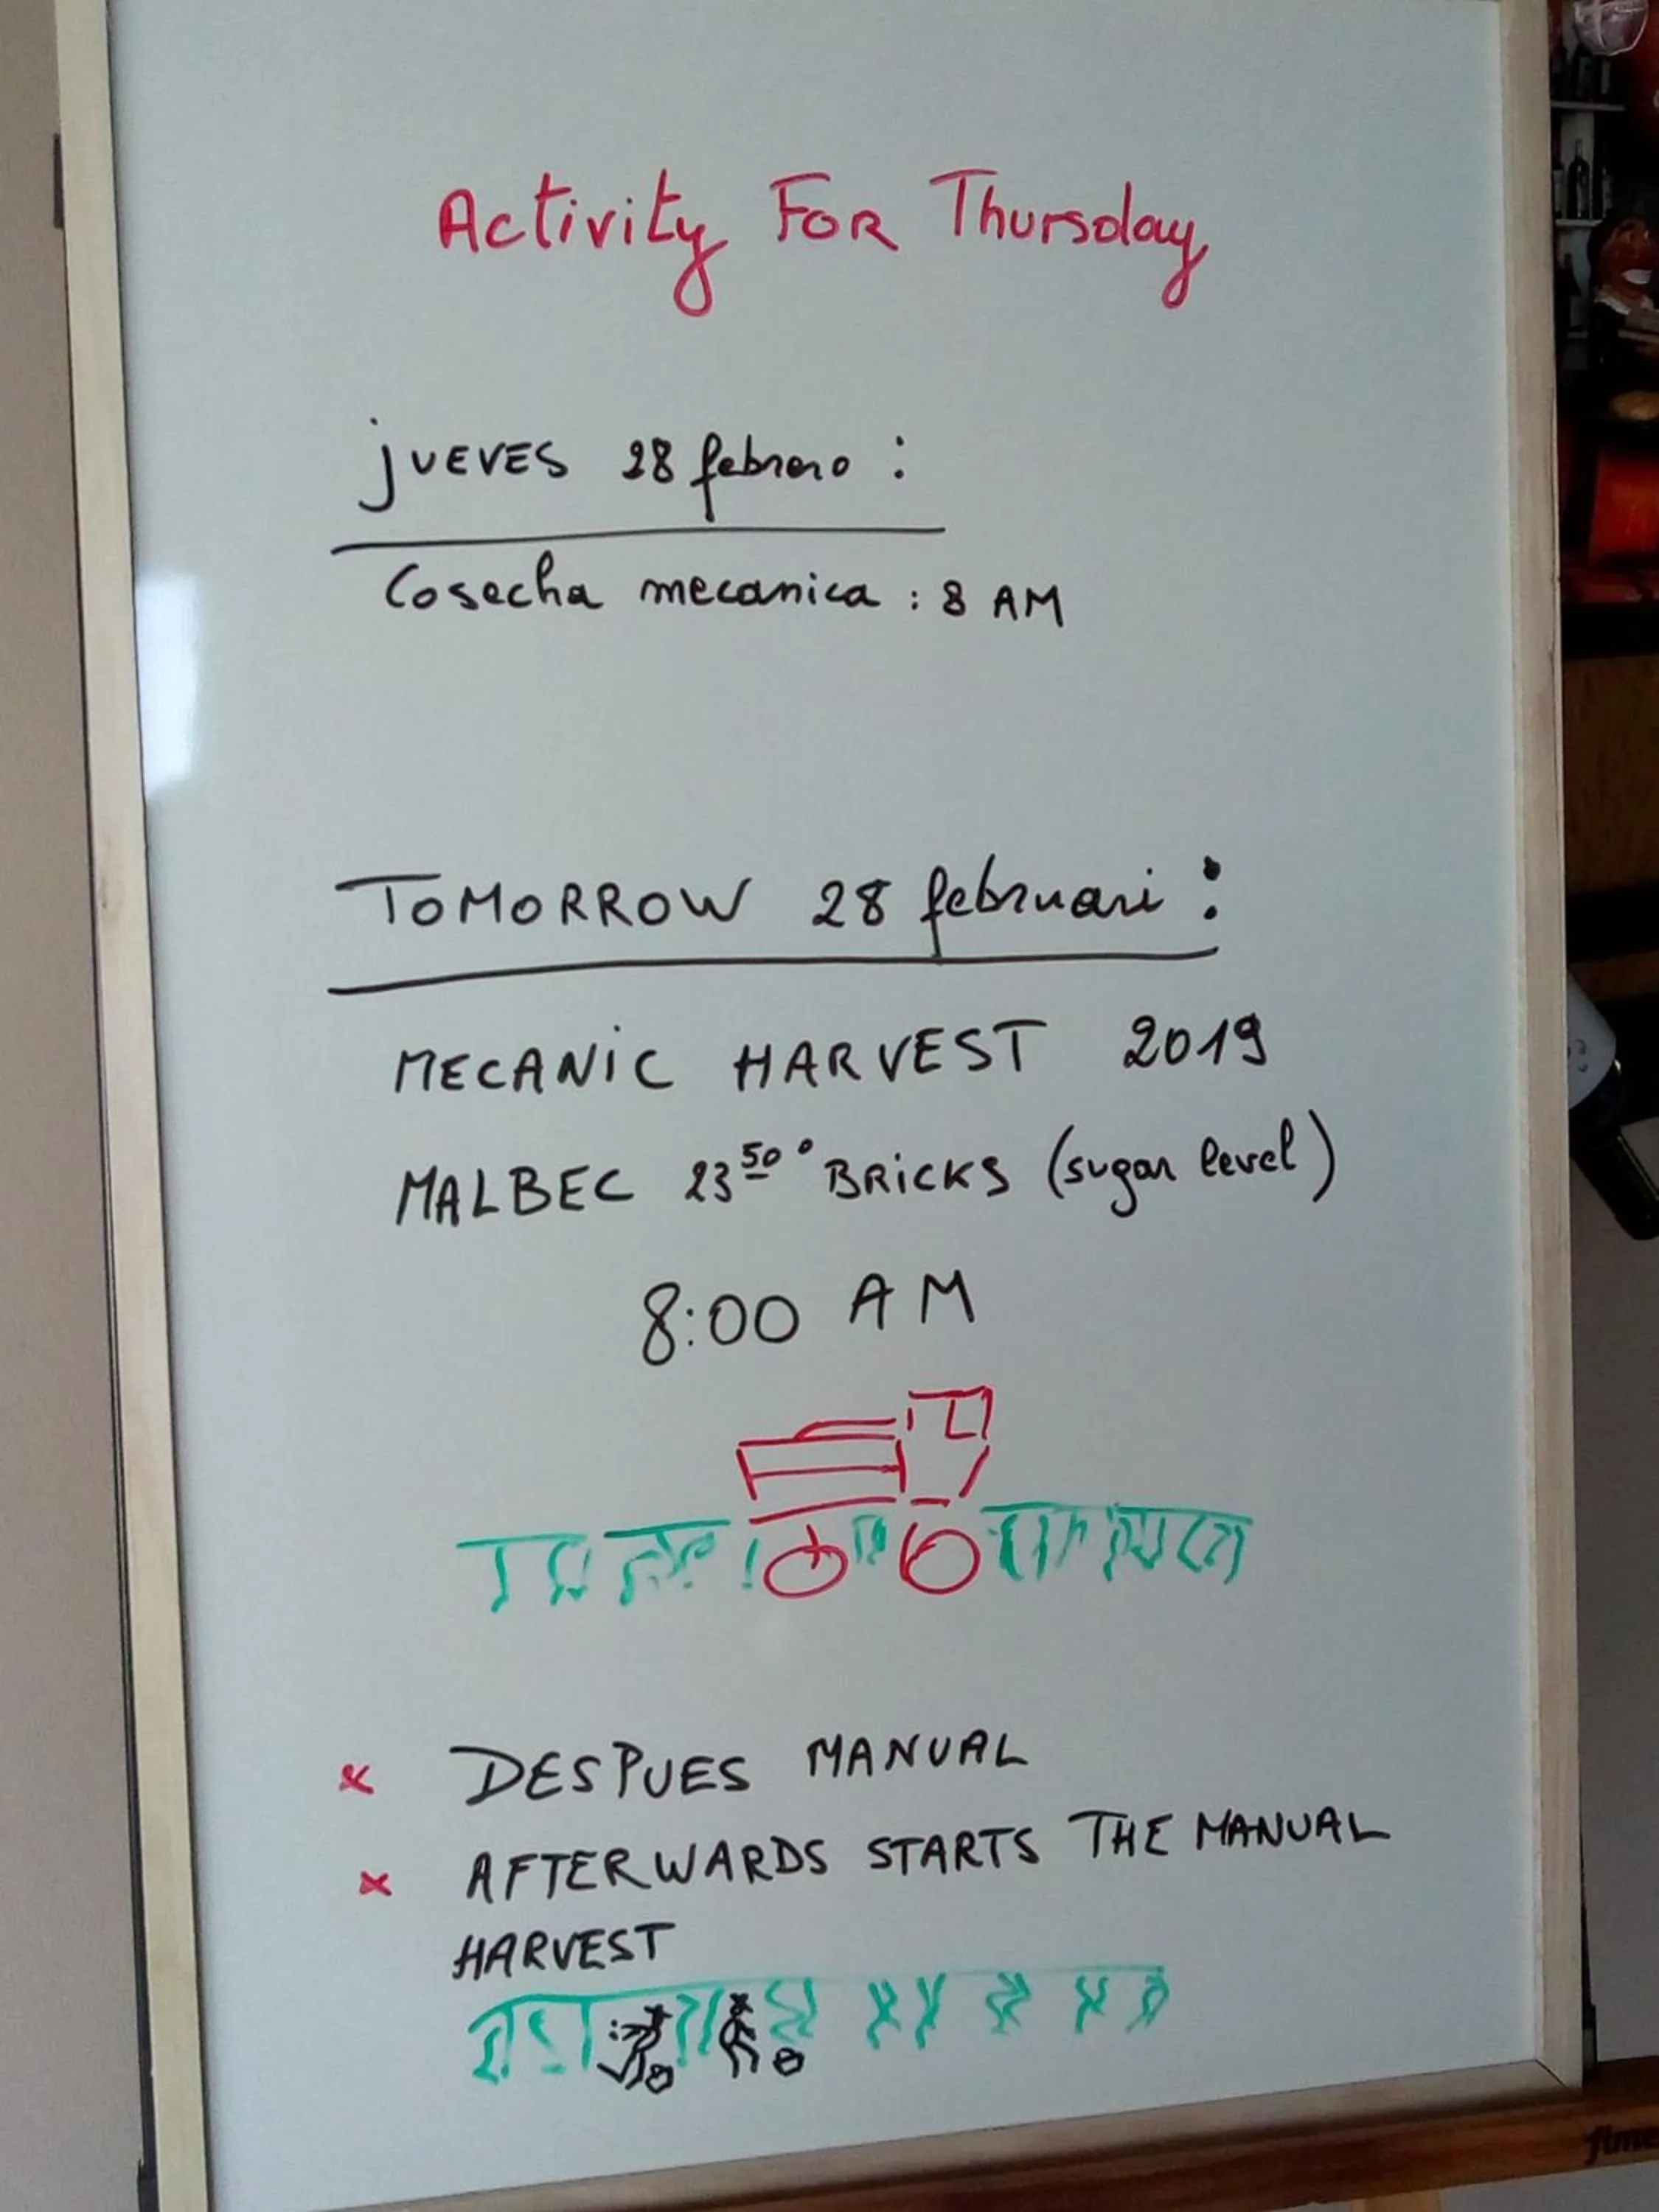 Activity FOR Thursday
jUEVES 28 febrero :
Cosecha mecanica : 8 AM
TOMORROW 28 februari :
MECANIC HARVEST 2019
MALBEC 23 50° BRICKS (sugar level)
8:00 AM
x DESPUES MANUAL
x AFTERWARDS STARTS THE MANUAL
HARVEST